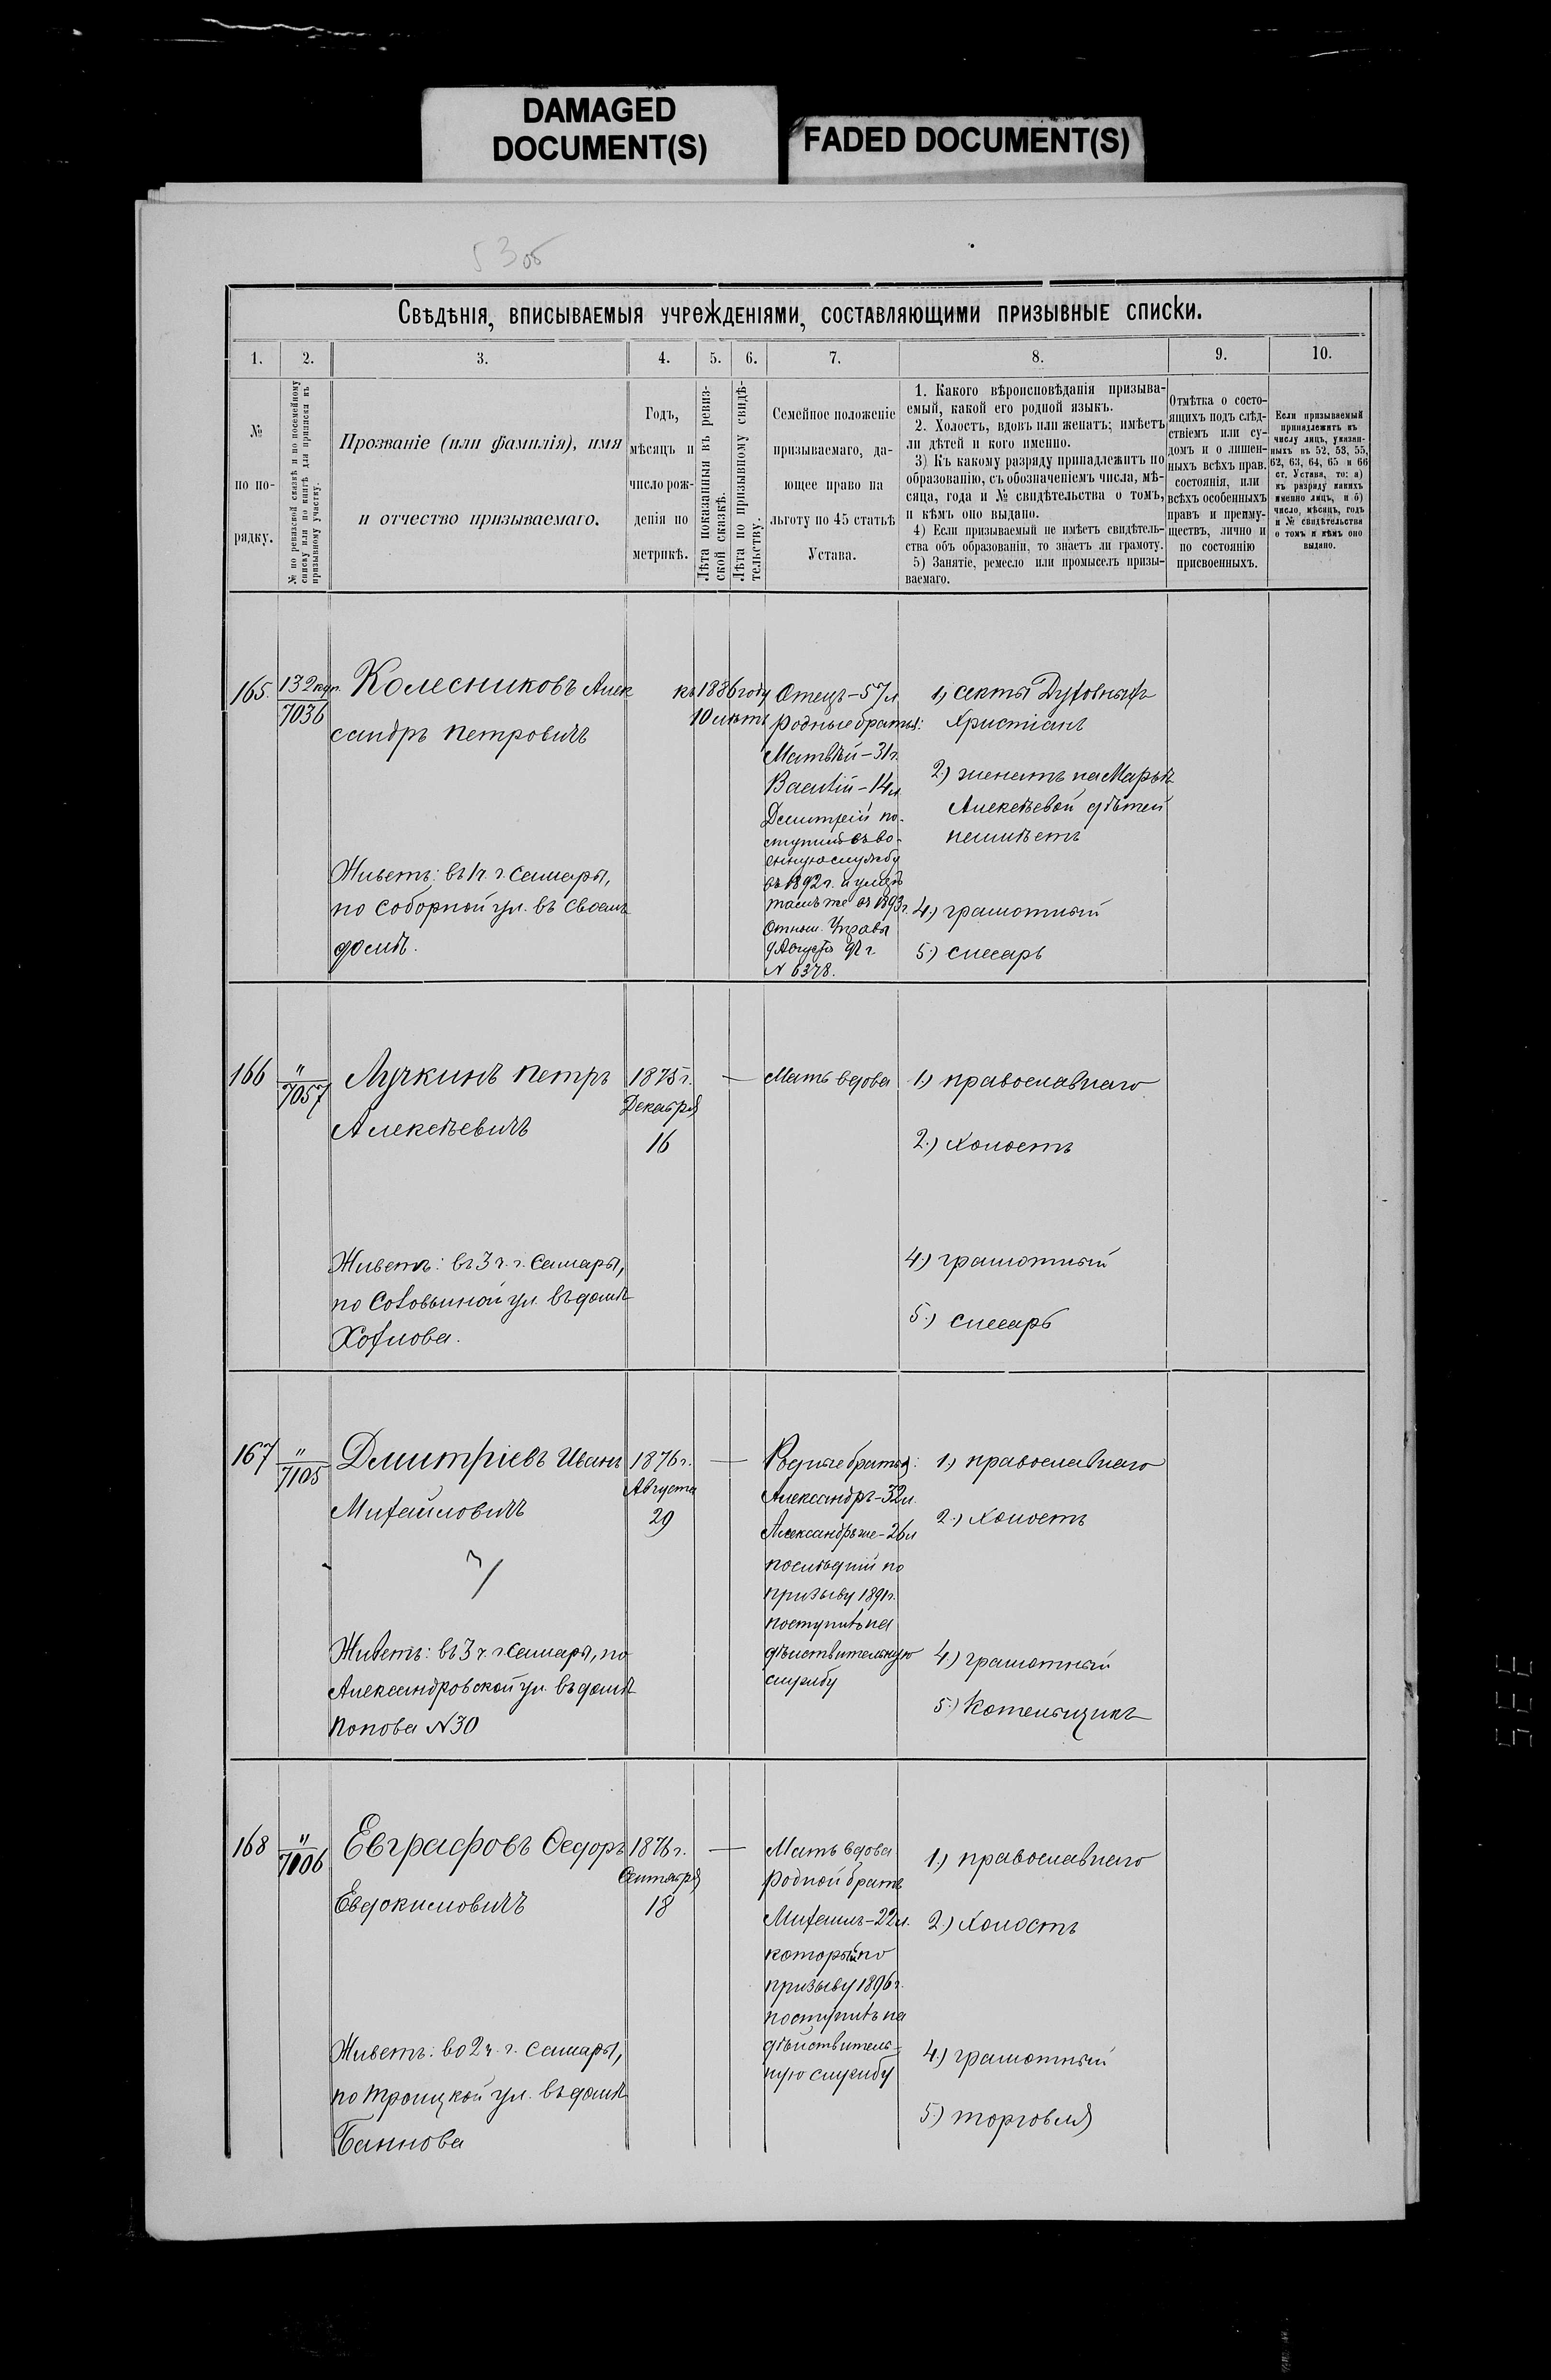 DAMAGED
DOCUMENT(S)
FADED DOCUMENT(S)
53 об
Свѣдѣнія, вписываемыя учрежденіями, составляющими призывные списки.
1. 2. 3. 4. 5. 6. 7. 8. 9. 10.
№
по по-
рядку.
№ по ревизской сказкѣ и по посемейному
списку или по книгѣ для приписки къ
призывному участку.
Прозваніе (или фамилія), имя
и отчество призываемаго.
Годъ,
мѣсяцъ и
число рож-
денія по
метрикѣ.
Лѣта показанныя въ ревиз-
ской сказкѣ.
Лѣта по призывному свидѣ-
тельству.
Семейное положеніе
призываемаго, да-
ющее право на
льготу по 45 статьѣ
Устава.
1. Какого вѣроисповѣданія призыва-
емый, какой его родной языкъ.
2. Холостъ, вдовъ или женатъ; имѣетъ
ли дѣтей и кого именно.
3) Къ какому разряду принадлежитъ по
образованію, съ обозначеніемъ числа, мѣ-
сяца, года и № свидѣтельства о томъ,
и кѣмъ оно выдано.
4) Если призываемый не имѣетъ свидѣтель-
ства объ образованіи, то знаетъ ли грамоту.
5) Занятіе, ремесло или промыселъ призы-
ваемаго.
Отмѣтка о состо-
ящихъ подъ слѣд-
ствіемъ или су-
домъ и о лишен-
ныхъ всѣхъ прав.
состоянія, или
всѣхъ особенныхъ
правъ и преиму-
ществъ, лично и
по состоянію
присвоенныхъ.
Если призываемый
принадлежитъ къ
числу лицъ, указан-
ныхъ въ 52, 53, 55,
62, 63, 64, 65 и 66
ст. Устава, то: а)
къ разряду какихъ
именно лицъ, и б)
число, мѣсяцъ, годъ
и № свидѣтельства
о томъ и кѣмъ оно
выдано.
165.
132
7036
Колесниковъ Алек
сандръ Петровичъ
Живетъ: въ 1 ч. г. Самары,
по Соборной ул. въ своемъ
домѣ.
къ 1886 году
10 лѣтъ
Отецъ – 57 л
родные братья:
Матвѣй – 31 г.
Василій – 14 л
Дмитрій по-
ступилъ въ во-
енную службу
въ 1892 г. и умеръ
тамъ же въ 1893 г.
Отнош. Управы
9 Августа 97 г.
N 6378.
1) секты Духовныхъ
Христіанъ
2) женатъ на Марьѣ
Алексѣевой дѣтей
неимѣетъ
4) грамотный
5) слесарь
166
"
7057
Лучкинъ Петръ
Алексѣевичъ
Живетъ: въ 3 ч. г. Самары,
по Соловьиной ул. въ домѣ
Хохлова.
1875 г.
Декабря
16
—
Мать вдова
1) православнаго
2) холостъ
4) грамотный
5) слесарь
167
"
7105
Дмитріевъ Иванъ
Михайловичъ
Живетъ: въ 3 ч. г. Самары, по
Александровской ул. въ домѣ
Попова N 30
1876 г.
Августа
29
—
Родные братья:
Александръ – 32 л.
Александръ же – 26 л
послѣдній по
призыву 1891 г.
поступилъ на
дѣйствительную
службу
1) православнаго
2) холостъ
4) грамотный
5) Котельщикъ
168
"
7106
Евграфовъ Ѳедоръ
Евдокимовичъ
Живетъ: во 2 ч. г. Самары,
по Троицкой ул. въ домѣ
Баннова
1876 г.
Сентября
18
—
Мать вдова
родной братъ
Михаилъ – 22 л.
который по
призыву 1896 г.
поступилъ на
дѣйствитель-
ную службу
1) православнаго
2) холостъ
4) грамотный
5) торговля